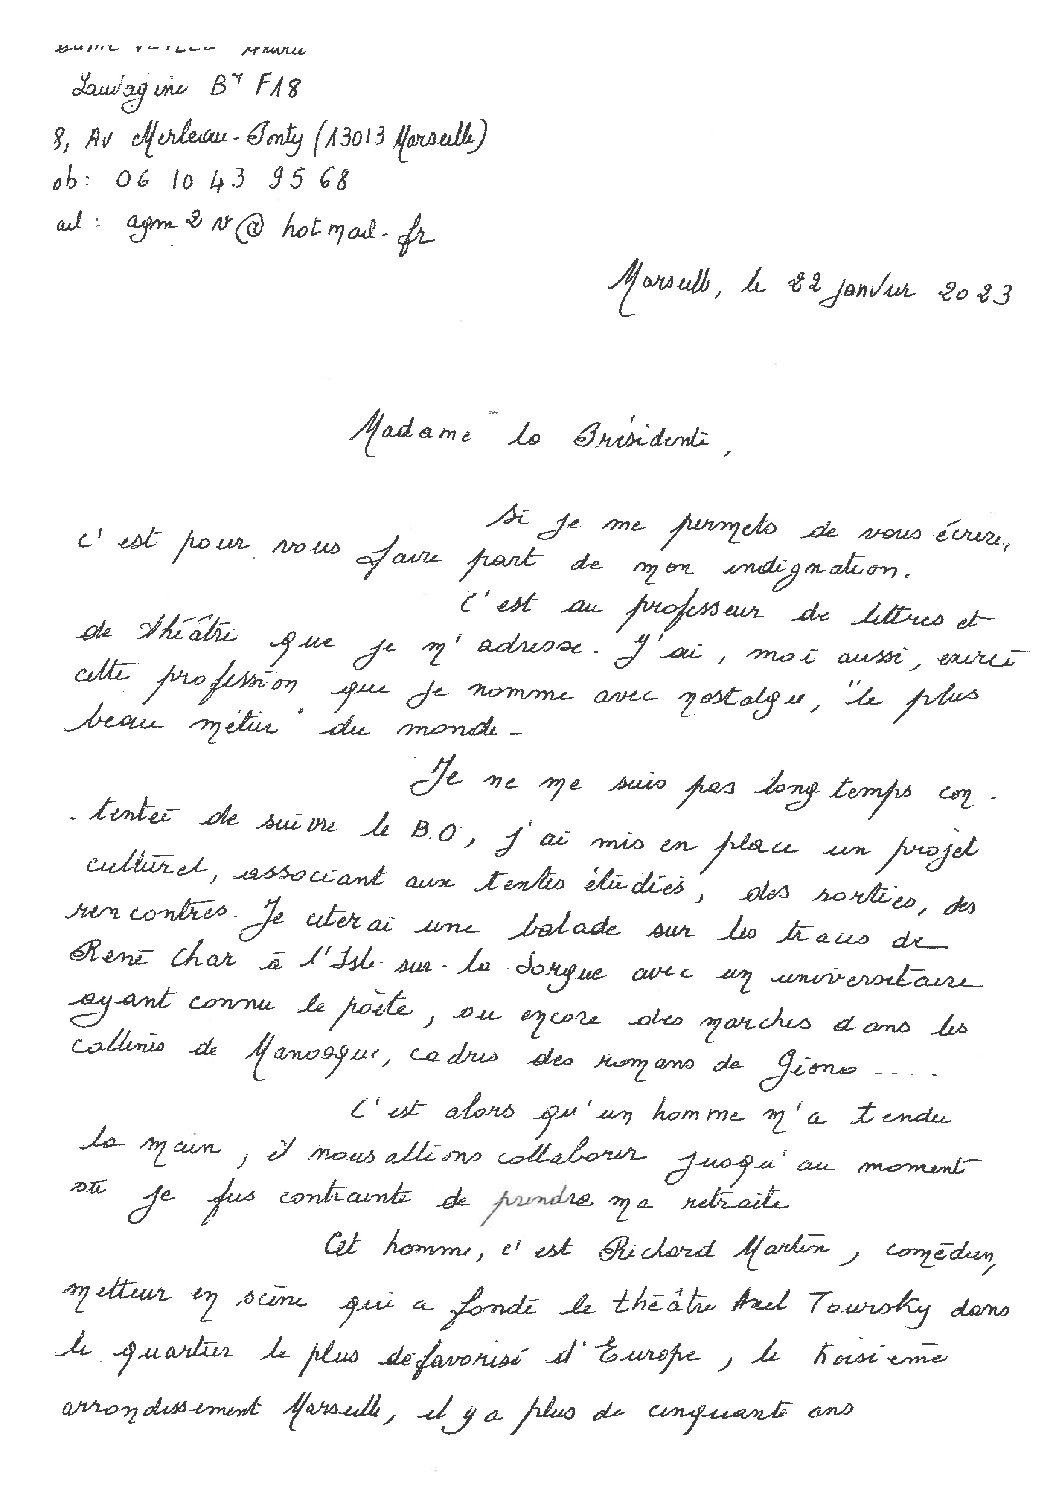 Sauvagine Bt F18
8, Av Merleau-Ponty (13013 Marseille)
ob : 06 10 43 95 68
ail : agm2v@hotmail.fr
Marseille, le 22 janvier 2023
Madame la Présidente,
Si je me permets de vous écrire,
c'est pour vous faire part de mon indignation.
C'est au professeur de lettres et
de théâtre que je m'adresse. J'ai, moi aussi, exercé
cette profession que je nomme avec nostalgie, "le plus
beau métier" du monde.
Je ne me suis pas longtemps con-
-tentée de suivre le B.O, j'ai mis en place un projet
culturel, associant aux textes étudiés, des sorties, des
rencontres. Je citerai une balade sur les traces de
René Char à l'Isle-sur-la Sorgue avec un universitaire
ayant connu le poète, ou encore des marches dans les
collines de Manosque, cadres des romans de Giono ....
C'est alors qu'un homme m'a tendu
la main, et nous allions collaborer jusqu'au moment
où je fus contrainte de prendre ma retraite
Cet homme, c'est Richard Martin, comédien,
metteur en scène qui a fondé le théâtre Axel Toursky dans
le quartier le plus défavorisé d'Europe, le troisième
arrondissement Marseille, il y a plus de cinquante ans